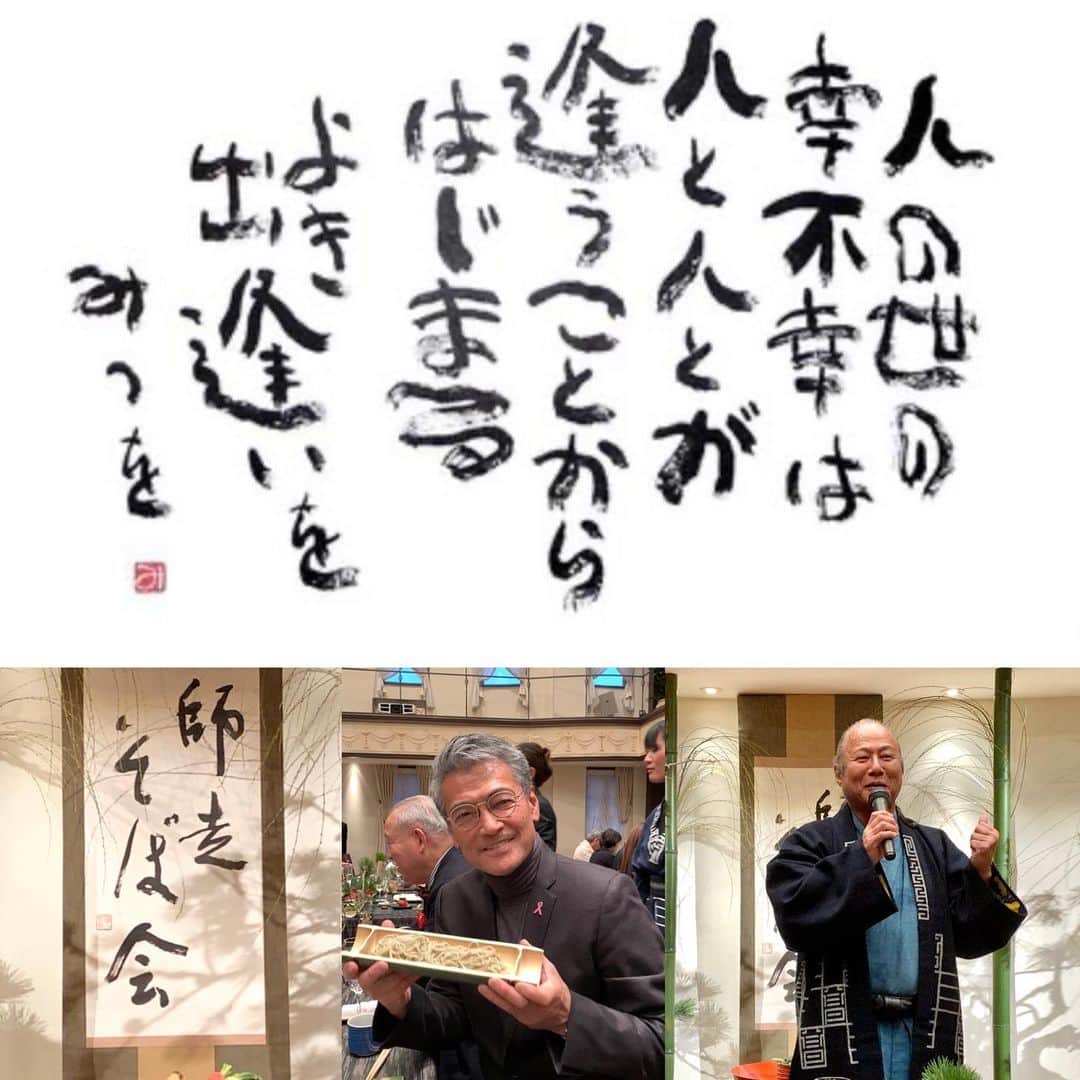 人の世の
幸不幸は
人と人とが
逢うことから
はじまる
よき
出逢いを
みつを
み
師走
そば会
師
会